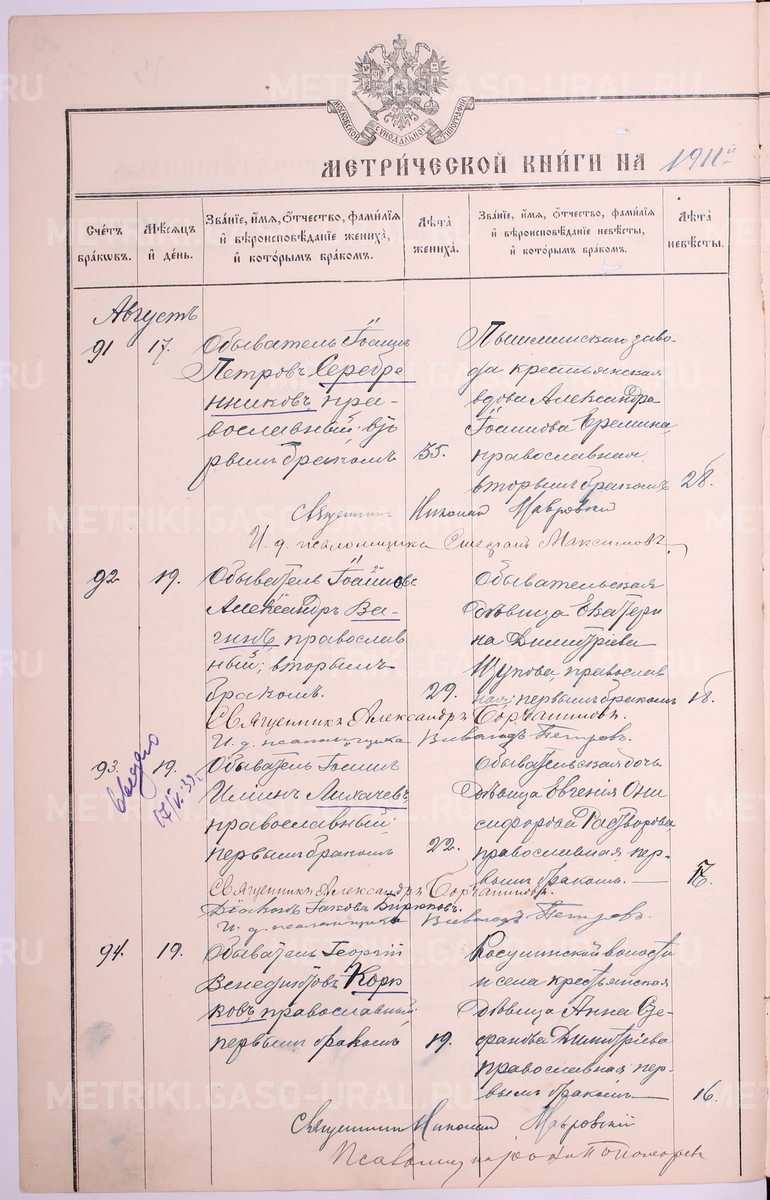 МОСКОВСКОЙ СѴНОДАЛЬНОЙ ТИПОГРАФІИ
МЕТРИ́ЧЕСКОЙ КНИ́ГИ НА 1911й
Сче́тъ бра́кωвъ.
Мѣ́сяцъ и де́нь.
Зва́нїе, и́мя, ѻ́тчество, фами́лїя
и вѣроисповѣ́данїе жениха̀,
и кото́рымъ бра́комъ.
Лѣ́та жениха̀.
Зва́нїе, и́мя, ѻ́тчество, фами́лїя
и вѣроисповѣ́данїе невѣ́сты,
и кото́рымъ бра́комъ.
Лѣ́та невѣ́сты.
Августъ
91 17. Обыватель Іоаннъ
Петровъ Серебре
нниковъ пра-
вославный; вто
рымъ бракомъ 35.
Пышминскаго заво-
да крестьянская
вдова Александра
Іоаннова Еремина,
православная
вторымъ бракомъ 28.
Священникъ Николай Мавровскій
И. д. псаломщика Стефанъ Максимовъ
92. 19. Обыватель Іоанновъ
Александръ Ва-
гинъ, православ
ный; вторымъ
бракомъ. 29.
Обывательская
дѣвица Екатери
на Димитріева
Щукова, православ
ная; первымъ бракомъ 18.
Священникъ Александръ
И. д. псаломщика Всеволодъ Петровъ.
93. 19. Обыватель Іоаннъ
Ильинъ Лихачевъ
православный;
первымъ бракомъ 22.
Обывательская дочь
дѣвица Евгенія Они
сифорова Растворова,
православная пер-
вымъ бракомъ. 17.
Священникъ Александръ
Діаконъ Іаковъ Бирюковъ.
И. д. псаломщика Всеволодъ Петровъ.
94. 19. Обыватель Георгій
Венедиктовъ Корю
ковъ, православный;
первымъ бракомъ 19.
волости
и села крестьянская
дѣвица Анна Сте-
фанова Димитріева
православная; пер-
вымъ бракомъ 16.
Священникъ Николай Мавровскій
Пономарев
METRIKI.GASO-URAL.RU